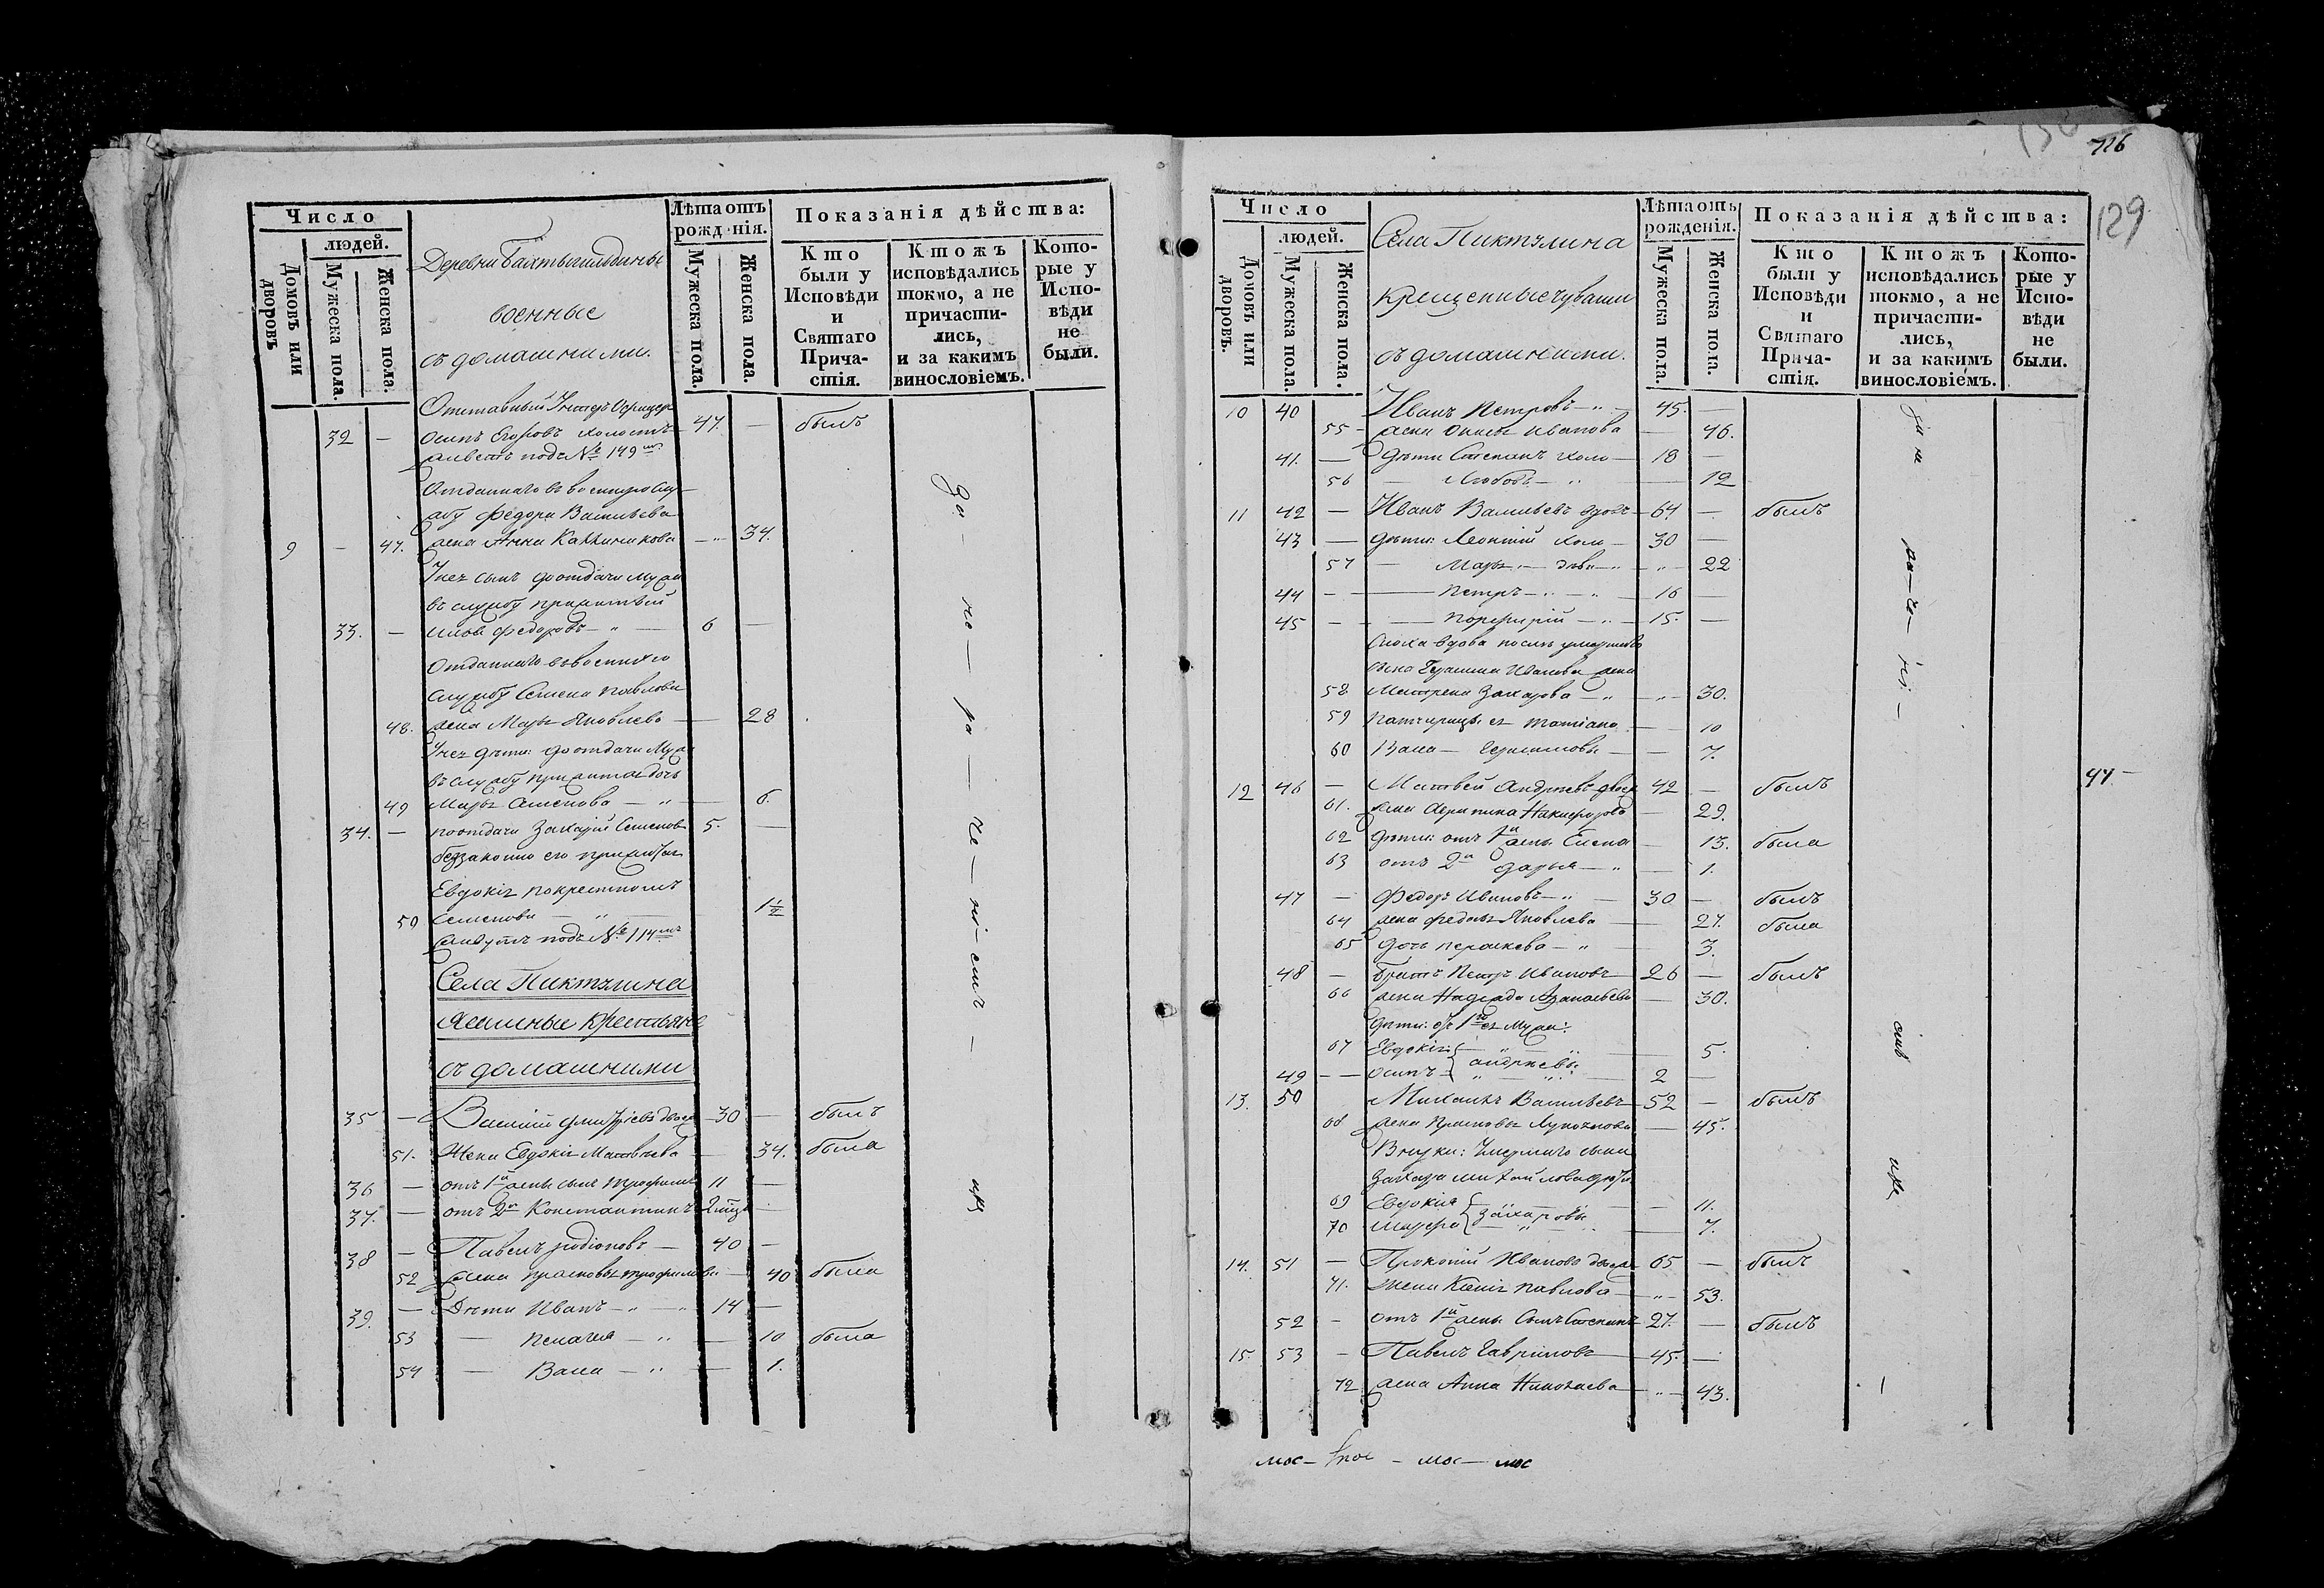 Число
людей.
Домовъ или дворовъ
Мужеска пола.
Женска пола.
Деревни Бахтыгильдины
военные
съ домашними.
Лѣта отъ рожденія.
Мужеска пола.
Женска пола.
Показанія дѣйства:
Кто были у Исповѣди и Святаго Причастія.
Ктожъ исповѣдались токмо, а не причастились, и за какимъ винословіемъ.
Которые у Исповѣди не были.
Отставный Унтеръ Офицеръ
32 — Осипъ Егоровъ холостъ 47. — былъ
живетъ подъ № 149мъ
Отданнаго въ военную слу
жбу Федора Васильева
9 — 47. жена Анна Каллиникова — 34.
У нея сынъ до отдачи мужа
въ службу прижитый
33. — Федоровъ — 6 —
Отданнаго въ военную
службу Семена Павлова
48. жена Марья Яковлева — 28
У нея дѣти: до отдачи мужа
въ службу прижитая дочь
49 Марья Семенова — 6.
34. — по отдачи Захарій Семеновъ 5. —
беззаконно ею прижитая
Евдокія по крестному
50 Семенова — 1½
живутъ подъ № 114мъ
Села Пиктулина
ясашные крестьяне
съ домашними
35 — Василій Дмитріевъ двоеж 30 — былъ
51. Жена Евдокія Матвѣева 34. была
36 — отъ 1й жены сынъ Трофимъ 11 —
37. — отъ 2й Константинъ 2
38 — Павелъ Родіоновъ — 40 —
52 жена Прасковья Трофимова — 40 была
39. — Дѣти Иванъ — 14 —
53 — Пелагея — 10 была
54 — Васса — 1.
за — не — ра — че — ні — емъ —
126
129
Число
людей.
Домовъ или дворовъ.
Мужеска пола.
Женска пола.
Села Пиктулина
крещенные чуваши
съ домашними.
Лѣта отъ рожденія.
Мужеска пола.
Женска пола.
Показанія дѣйства:
Кто были у Исповѣди и Святаго Причастія.
Ктожъ исповѣдались токмо, а не причастились, и за какимъ винословіемъ.
Которые у Исповѣди не были.
10 40 Иванъ Петровъ — 45. —
55 — жена Иванова — 46.
41. — дѣти Степанъ холо — 18 —
56 — Любовь — 12
11 42 — Иванъ Васильевъ вдовъ — 64. — былъ
43 — дѣти: Леонтій холо — 30 —
57 — Марья — дѣви — 22
44 — Петръ — 16 —
45 — Порфирій — 15. —
Сноха вдова послѣ умершаго
сына Герасима Иванова жена
58 Матрена Захарова — 30.
59 Падчерицы ея Татіана — 10
60 Васса — Герасимовы — 7.
12 46 — Матвей Андреевъ двоеж 42 — былъ
61. жена Агрипина Никифорова — 29.
62 дѣти: отъ 1й жены Елена — 13. была
63 отъ 2й Дарья — 1.
47 — Федоръ Ивановъ — 30 — былъ
64 жена Федосья Яковлева — 27. была
65 дочь Перасковья — 3.
48 — братъ Петръ Ивановъ 26 — былъ
66 жена Надежда — 30.
дѣти: отъ 1го ея мужа:
67 Евдокія 5.
49 — — Осипъ Андреевы 2 —
13. 50 Михаилъ Васильевъ — 52 — былъ
68 жена Прасковья — 45.
Внуки: умершаго сына
Захара Михайлова дѣти
69 Евдокія — 11.
70 Захаровы — 7.
14. 51 — Прокопій Ивановъ двоеж 65 — былъ
71. Жена Ксенія Павлова — 53.
52 — отъ 1й жены сынъ Степанъ 27. — былъ
15. 53 — Павелъ Гавриловъ — 45. —
72 жена Анна Николаева — 43.
за не ра — че — ні —
47 —